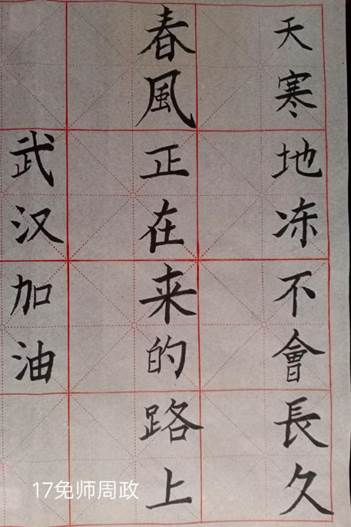 天寒地冻不會長久
春風正在来的路上
武汉加油
17免师周政